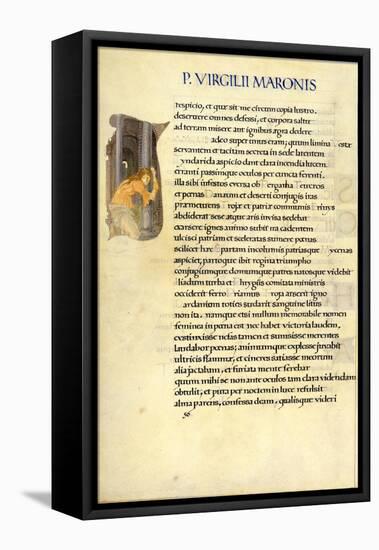 P. VIRGILII MARONIS
respicio, et quæ sit me circum copia lustro.
deseruere omnes defessi, et corpora saltu
ad terram misere aut ignibus ægra dedere
adeo super unus eram; quum limina estæ
servantem et tacitam secreta in sede latentem
yndarida aspicio dant clara incendia lucem
erranti passimque oculos per cuncta ferenti.
illa sibi infestos eversa ob ergama eucros
et pœnas anaum et deserti conjugis iras
præmetuens roiæ et patriæ communis rinys
abdiderat sese atque aris invisa sedebat
exarsere ignes animo subit ira cadentem
ulcisci patriam et sceleratas sumere pœnas
scilicet hæc partam incolumis patriasque ycenas
aspiciet, partoque ibit regina triumpho
conjugiumque domumque patres natosque videbit
liadum turba et hrygiis comitata ministris
occiderit ferro riamus roja arserit igni
ardanium toties sudarit sanguine litus
non ita. namque etsi nullum memorabile nomen
feminea in pœna est nec habet victoria laudem,
extinxisse nefas tamen et sumsisse merentes
laudabor pœnas; animumque explesse juvabit
ultricis flammæ, et cineres satiasse meorum
alia jactabam, et furiata mente ferebar
quum mihi se non ante oculos tam clara videndam
obtulit, et pura per noctem in luce refulsit
alma parens, confessa deam, qualisque videri
56